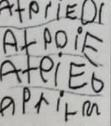 AtPriEDI
AtPOiE
AtPiEb
APritm